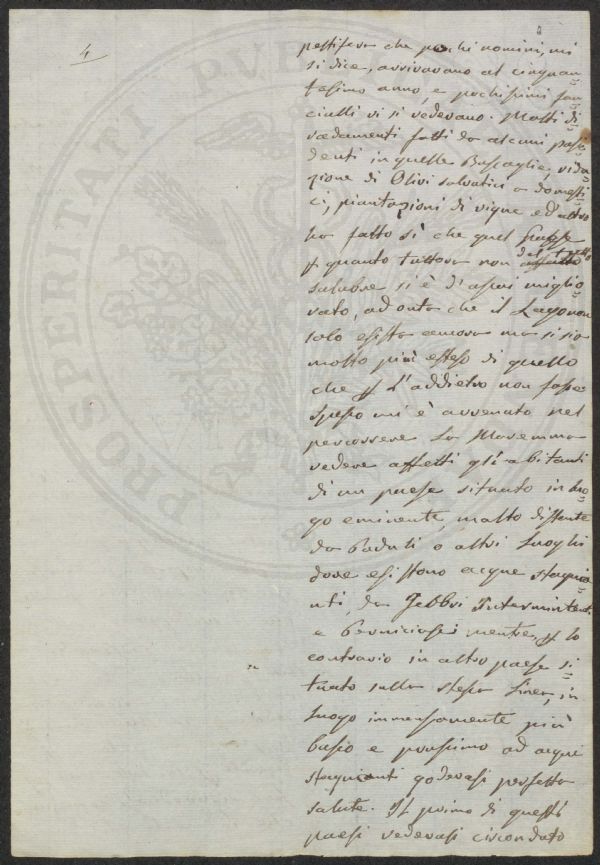 4
pestifero che pochi uomini, mi
si dice, arrivavano al cinquan=
tesimo anno, e pochissimi fan=
ciulli vi si vedevano. Molti di=
radamenti fatti da alcuni posse=
denti in quelle Boscaglie, ridu=
zione di Olivi salvatici a domesti=
ci, piantazioni di vigne ed altro
ha fatto sì che quel Paese
p quanto tuttora non del tutto
salubre si è d'assai miglio=
rato, ad onta che il Lago non
solo esista ancora ma si sia
molto più esteso di quello
che p l'addietro non fosse.
Spesso mi è avvenuto nel
percorrere la Maremma
vedere affetti gli abitanti
di un paese situato in luo=
go eminente, molto distante
da Paduli o altri luoghi
dove esistono acque stagna=
nti, da Febbri Intermittenti
e Perniciose; mentre, p lo
contrario in altro paese si=
tuato sulla stessa linea, in
luogo immensamente più
basso e prossimo ad acque
stagnanti godevasi perfetta
salute. Il primo di questi
paesi vedevasi circondato
PROSPERITATI PUB